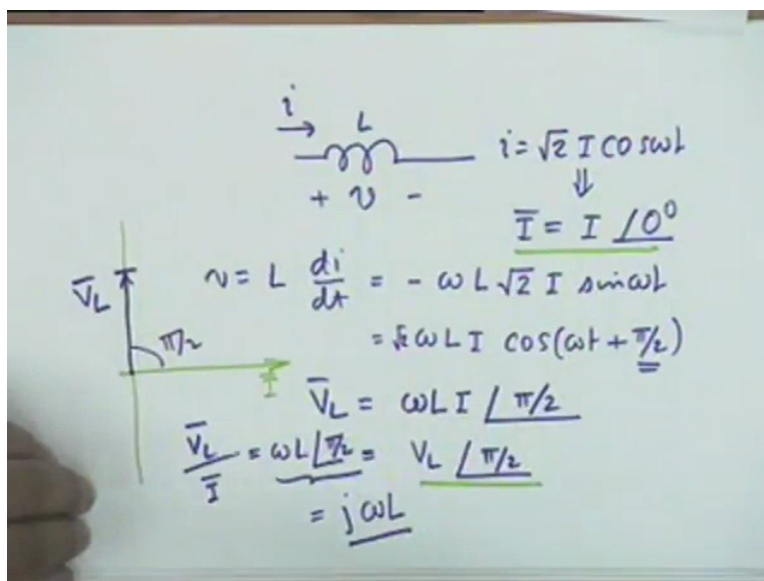 i
L
i = √2 I cos ωt
+ v -
⇓
Ī = I ∠0°
V̄_L
π/2
Ī
v = L di/dt = - ωL√2 I sin ωt
= √2 ωLI cos(ωt + π/2)
V̄_L = ωLI ∠π/2
V̄_L/Ī = ωL∠π/2 = V_L ∠π/2
= jωL